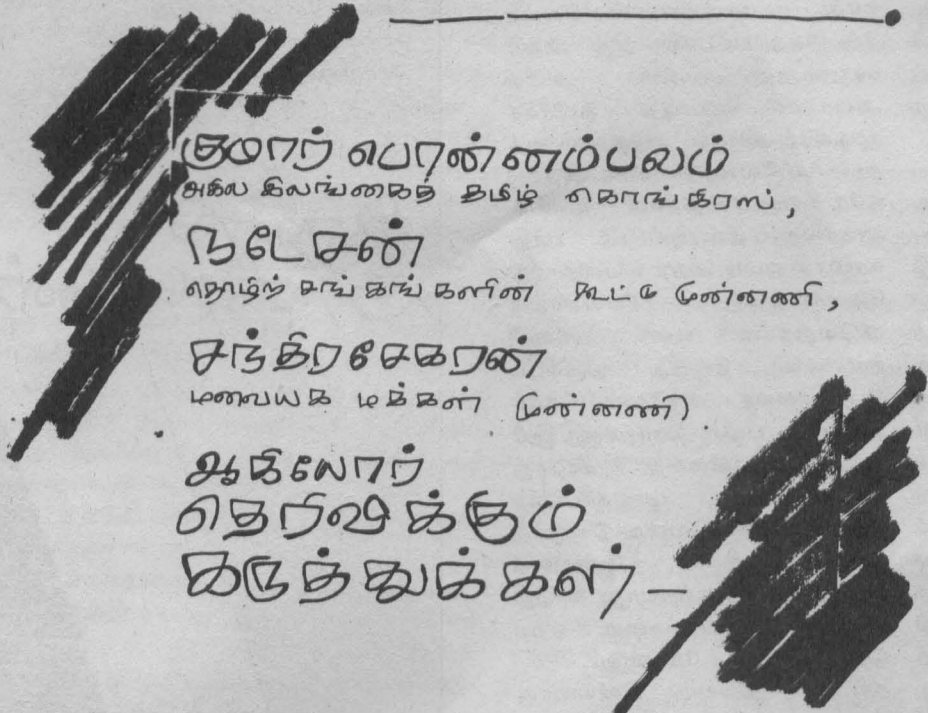 குமார் பொன்னம்பலம்
அகில இலங்கைத் தமிழ் கொங்கிரஸ்,
நடேசன்
தொழிற் சங்கங்களின் கூட்டு முன்னணி,
சந்திரசேகரன்
மலையக மக்கள் முன்னணி
ஆகியோர்
தெரிவிக்கும்
கருத்துக்கள் —